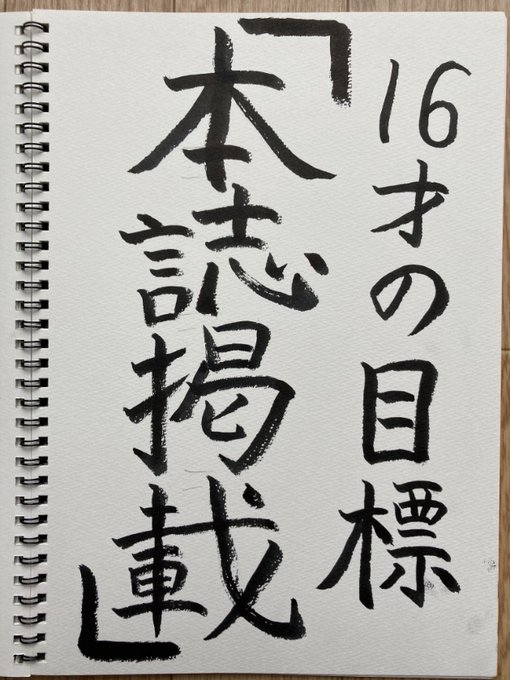 16才の目標
「本誌掲載」